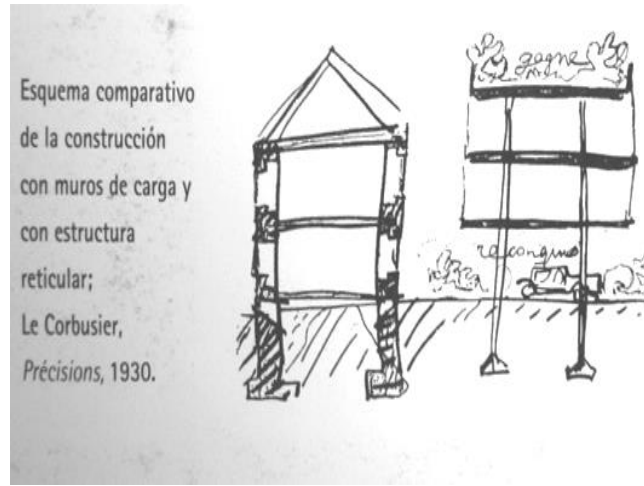 Esquema comparativo
de la construcción
con muros de carga y
con estructura
reticular;
Le Corbusier,
Précisions, 1930.
gagné